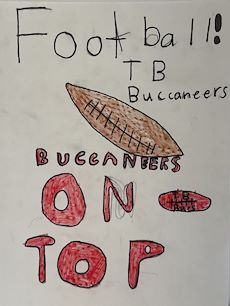 Football!
TB
Buccaneers
BUCCANEERS
ON
TOP